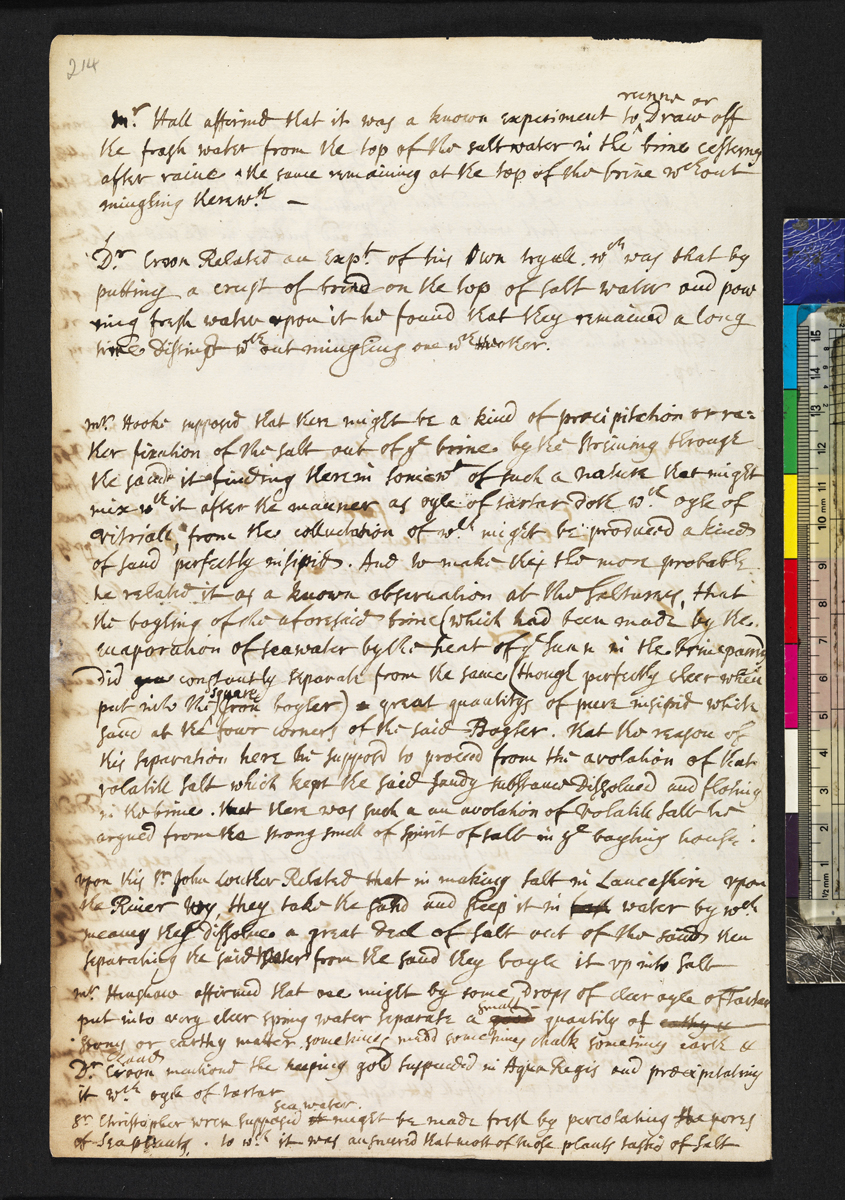 214
runne or
mr. Hall affirmd that it was a known experiment to Draw off
the fresh water from the top of the salt water in the brine cesterns
after raine the same remaining at the top of the brine wthout
mingling therewth. —
Dr. Croon Related an Expt. of his Own tryall. wch was that by
putting a crust of bread on the top of salt water and pow
ring fresh water vpon it he found that they remained a long
time distinct wthout mingling one wth other.
mr. Hooke supposed that there might be a kind of precipitation or ra=
ther fixation of the salt out of ye brine by the streining through
the sand it finding therein somewt of such a nature that might
mix wth it after the manner as oyle of tartar doth wth oyle of
vitriall, from the colluctation of wch might be produced a kind
of sand perfectly insipid. And to make this the more probable
he related it as a known observation at the Salturnes, that
the boyling of the aforesaid brine (which had been made by the
evaporation of sea water by the heat of ye sunn in the brine panns
Did constantly separate from the same (though perfectly cleer when
square
put into the Iron boyler) great quantitys of pure insipid white
sand at the four corners of the said Boyler. that the reason of
this separation here he supposd to proceed from the avolation of that
volatill salt which kept the said sandy substance Dissolued and floting
in the brine. that there was such a an avolation of volatill salt he
argued from the strong smell of spirit of salt in ye boyling house.
vpon this Sr. John Lowther Related that in making salt in Lancashire vpon
the River Wy, they take the sand and steep it in water by wch
meanes they dissolue a great deal of salt out of the sand then
separating the said water from the sand they boyle it vp into salt
mr. Henshaw affirmd that one might by some Drops of cleer oyle of tartar
small
put into very cleer spring water separate a good quantity of earthy &
stony or earthy matter. sometimes mudd sometimes chalk sometimes earth &
Dr. Croon mentiond the keeping gold suspended in Aqua Regis and precipitating
it wth oyle of tartar
sea water.
Sr. Christopher wren supposed it might be made fresh by percolating the pores
of Sea plants. to wch it was answered that most of those plants tasted of salt